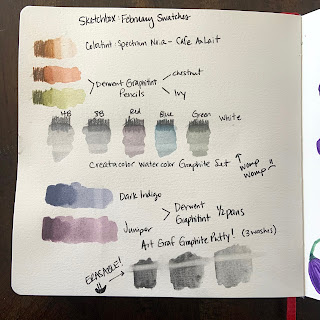 Sketchbox: February Swatches
Colortint: Spectrum No.2 - Cafe Au Lait
Derwent Graphitint Pencils
chestnut
Ivy
4B 8B Red Blue Green
White
Creatacolor Watercolor Graphite Set
Womp Womp
Dark Indigo
Juniper
Derwent Graphitint 1/2 pans
Art Graf Graphite Putty! (3 washes)
ERASABLE!